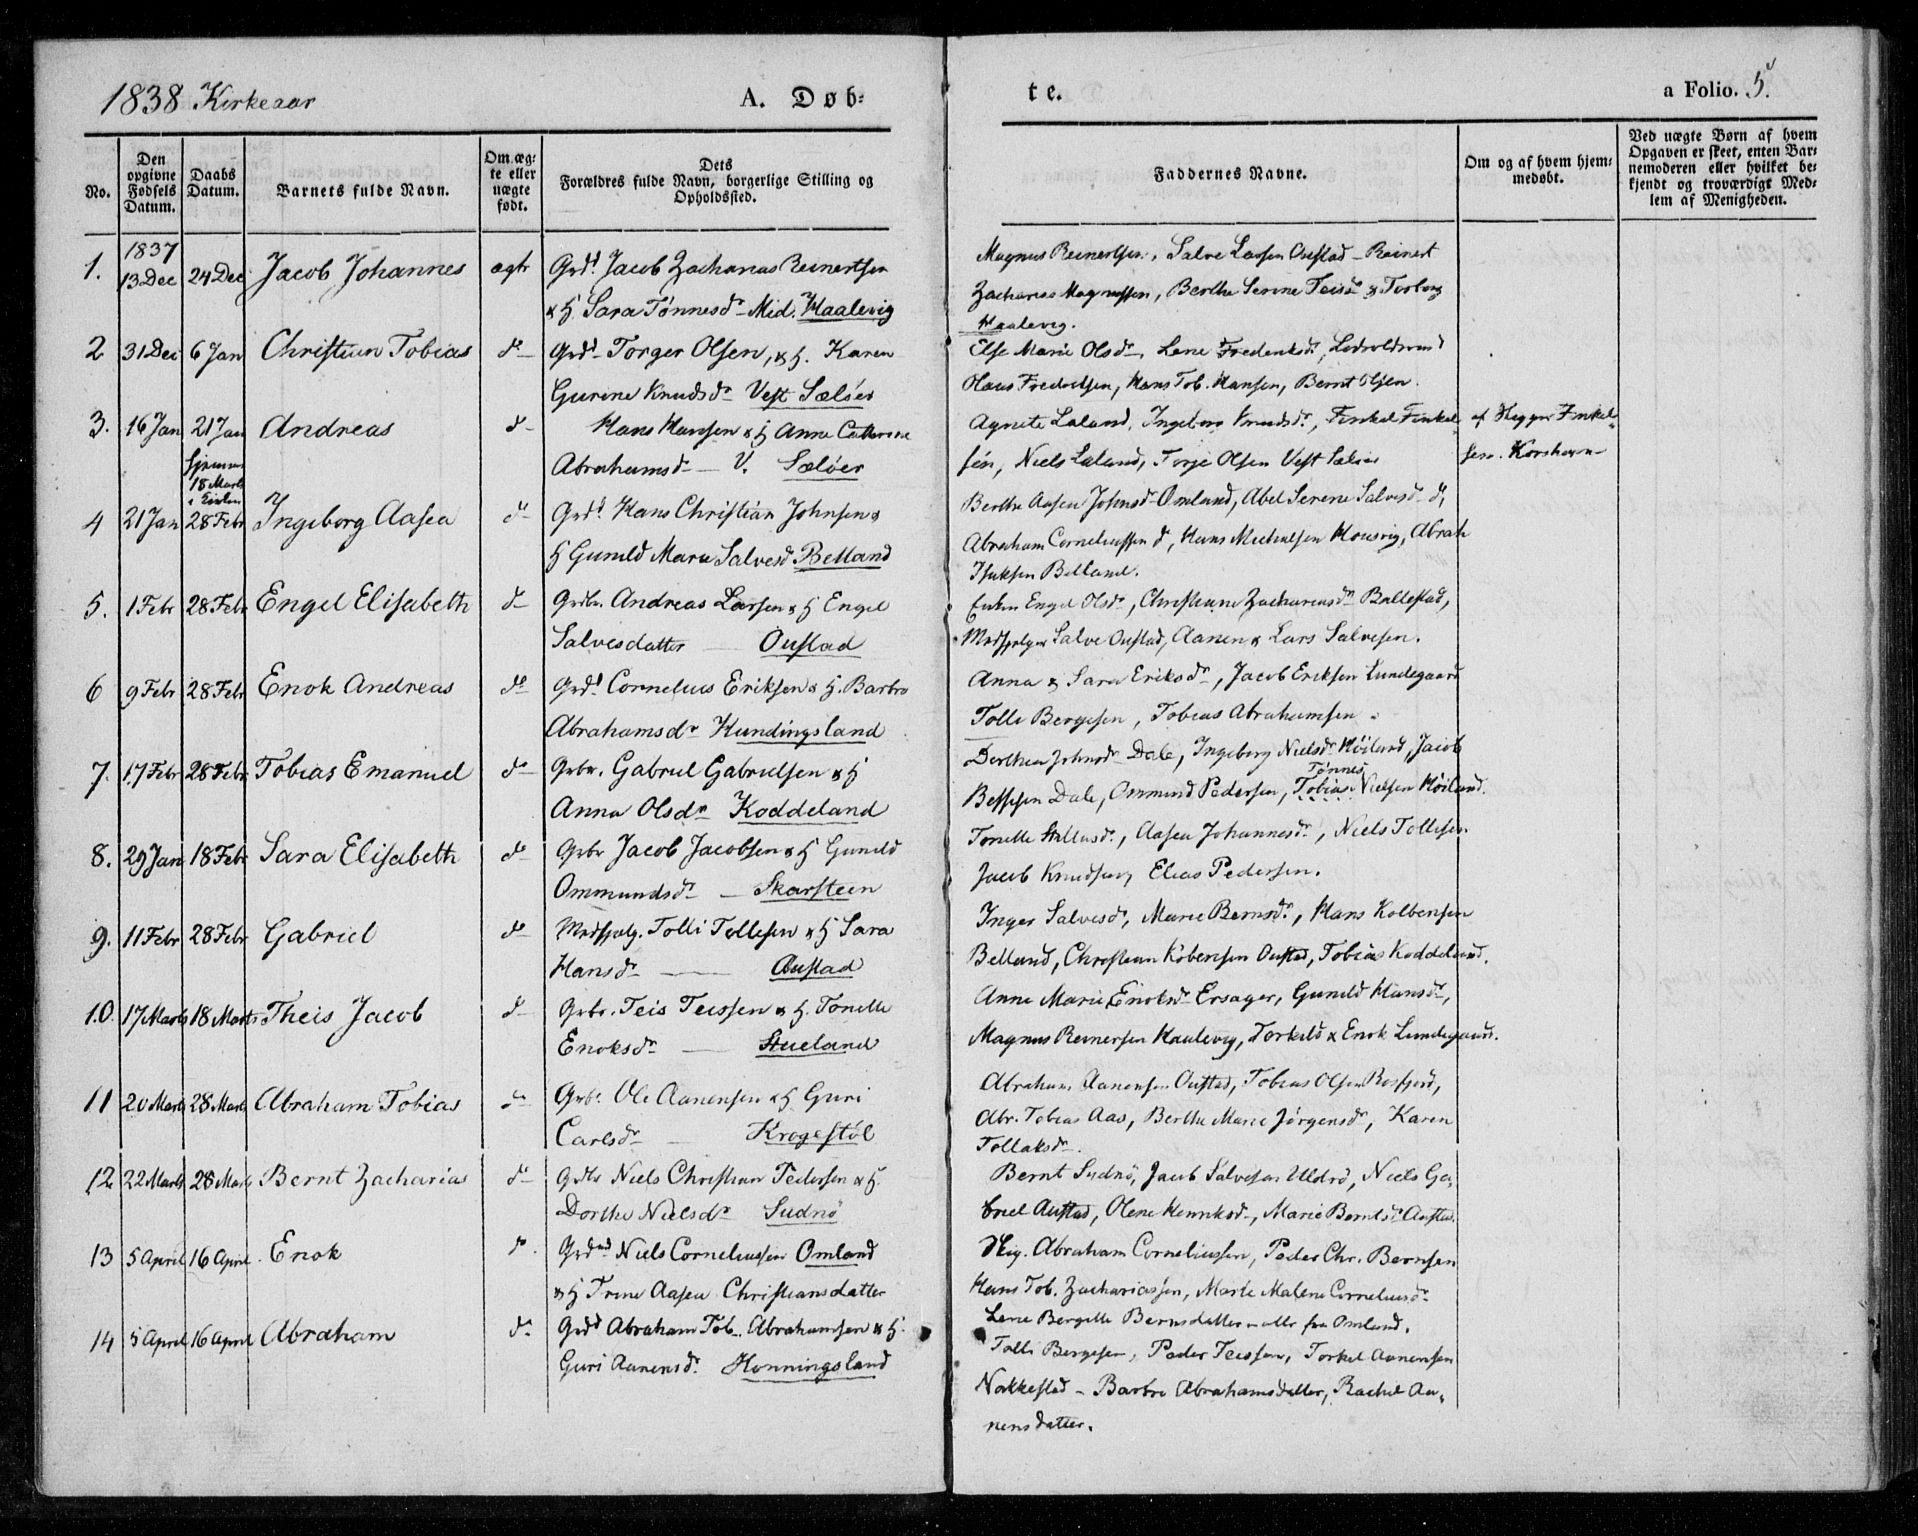 1838 Kirkeaar
A. Døb-
te.
a Folio. 5.
No.
Den opgivne Fødsels Datum.
Daabs Datum.
Barnets fulde Navn.
Om ægte eller uægte født.
Dets Forældres fulde Navn, borgerlige Stilling og Opholdssted.
Faddernes Navne.
Om og af hvem hjemmedøbt.
Ved uægte Børn af hvem Opgaven er skeet, enten Barnemoderen eller hvilket bekjendt og troværdigt Medlem af Menigheden.
1837
1. 13 Dec 24 Dec Jacob Johannes ægte Grd. Jacob Zacharias Reinertsen
& H. Sara Tønnesdr Mid. Haalevig
Magnus Reinertsen, Salve Larsen Oustad - Reinert
Zacharias Magnussen, Berthe Serine Teisdr & Torborg
Haalevig.
2 31 Dec 6 Jan Christian Tobias do Grd. Torger Olsen, & H. Karen
Gurine Knudsdr Vest Sæløer
Else Marie Olsdr, Lene Fredriksdr,
Hans Tob. Hansen, Bernt Olsen.
3. 16 Jan 21 Jan Andreas do Hans Hansen & H Anne Cathrine
Abrahamsdr - V. Sæløer
18 Marts
Agnete Laland, Ingeborg Knudsdr, Tinkel Tinkel-
sen, Niels Laland, Torje Olsen Vest Sæløer
Korshavn
4 21 Jan 28 Febr Ingeborg Aasea do Grd. Hans Christian Johnsen &
H Gunild Marie Salvesdr Belland
Berthe Aasea Johnsdr Omland, Abel Serene Salvesdr do,
Abraham Corneliussen do, Hans Michalsen Housvig, Abrah
Isaksen Belland.
5. 1 Febr 28 Febr Engel Elisabeth do Grdbr. Andreas Larsen & H Engel
Salvesdatter - Oustad
Enken Engel Olsdr, Christiane Zachariasdr Ballestad,
Salve Oustad, Aanen & Lars Salvesen.
6 9 Febr 28 Febr Enok Andreas do Grd. Cornelius Eriksen & H. Barbro
Abrahamsdr Hundingsland
Anna & Sara Eriksdr, Jacob Eriksen Lundegaard
Tolli Bergesen, Tobias Abrahamsen.
7. 17 Febr 28 Febr Tobias Emanuel do Grbr. Gabriel Gabrielsen & H
Anna Olsdr Koddeland
Dorthea Johnsdr Dale, Ingeborg Nielsdr Höiland, Jacob
Tønnes
Dale, Ommund Pedersen, Tobias Nielsen Höiland.
8. 29 Jan 18 Febr Sara Elisabeth do Grbr Jacob Jacobsen & H Gunild
Ommundsdr - Skarsteen
Tonette, Aasea Johannesdr, Niels Tollisen.
Jacob Knudsen, Elias Pedersen.
9. 11 Febr 28 Febr Gabriel do Tolli Tollesen & H Sara
Hansdr - Oustad
Inger Salvesdr, Marie Bernsdr, Hans Kolbensen
Belland, Christian Oustad, Tobias Koddeland.
10. 17 Marts 18 Marts Theis Jacob do Grbr. Teis Teissen & H. Tonette
Enoksdr - Stueland
Anne Marie Enoksdr Ersager, Gunild Hansdr,
Magnus Reinersen Haalevig, Torkild & Enok Lundegaard.
11 20 Marts 28 Marts Abraham Tobias do Grbr. Ole Aanensen & H Guri
Carlsdr - Krogestøl
Abraham Aanensen Oustad, Tobias Olsen Rosfjord,
Abr. Tobias Aas, Berthe Marie Jörgensdr, Karen
Tollaksdr.
12 22 Marts 28 Marts Bernt Zacharias do Grbr Niels Christian Pedersen & H.
Dorthe Nielsdr Sudnö
Bernt Sudnö, Jacob Salvesen Uldrö, Niels Ga-
briel Austad, Olene Henriksdr, Marie Berntsdr Austad.
13 5 April 16 April Enok do. Grdmd Niels Corneliussen Omland
& H Trine Aasea Christiansdatter
Abraham Corneliussen, Peder Chr. Bernsen
Hans Tob. Zachariassen, Marte Malene Corneliusdr
Lene Bergitte Bernsdatter - alle fra Omland.
14 5 April 16 April Abraham do. Grd Abraham Tob. Abrahamsen & H.
Guri Aanensdr. Honningsland
Tolli Bergesen, Peder Teissen, Torkel Aanensen
Nokkestad - Barbro Abrahamsdatter, Rachel Aa-
nensdatter.